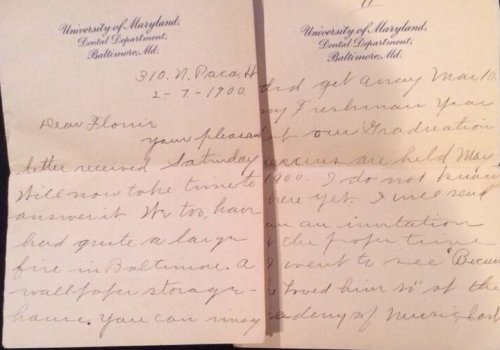 University of Maryland,
Dental Department,
Baltimore, Md.
310. N. Paca St
2-7-1900.
Dear
your pleasan
letter received Saturday
Will now take time to
answer it We too, have
had quite a large
fire in Baltimore. A
wallpaper storage-
house. You can may
11
University of Maryland,
Dental Department,
Baltimore, Md.
did get away May 10
my Freshman Year
t our Graduation
ercises are held May
1900. I do not know
here yet. I will send
an invitation
t the proper time
I went to see "Becau
e Loved him so" at the
cademy of Music, last